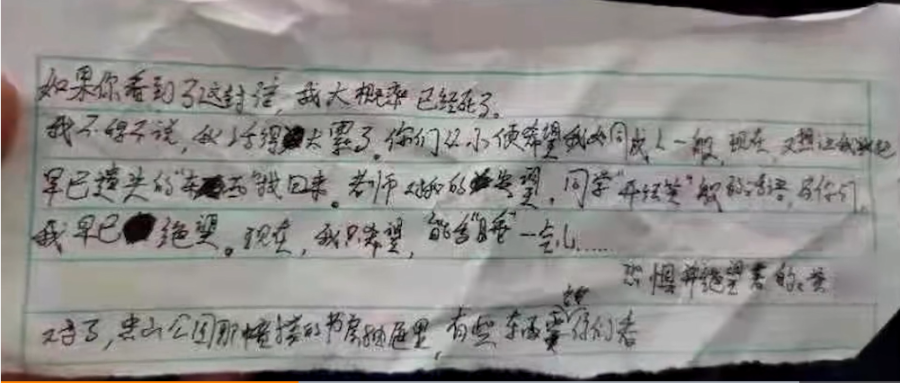 如果你看到了这封信,我大概率已经死了。
我不得不说,我活得太累了。你们从小便希望我如同成人一般,现在,又想让我找
早已遗失的"东西"找回来。老师对我的失望,同学"开玩笑"般的话语,与你们,
我早已绝望。现在,我只希望,能含"睡"一会儿……
恐惧并绝望着的
对了,公园那幢楼的书房抽屉里,有些东西要给你们看